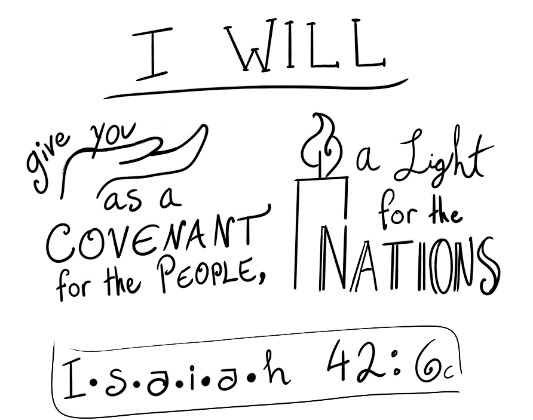 I WILL
give you
as a
COVENANT
for the PEOPLE,
a Light
for the
NATIONS
I•s•a•i•a•h 42:6c